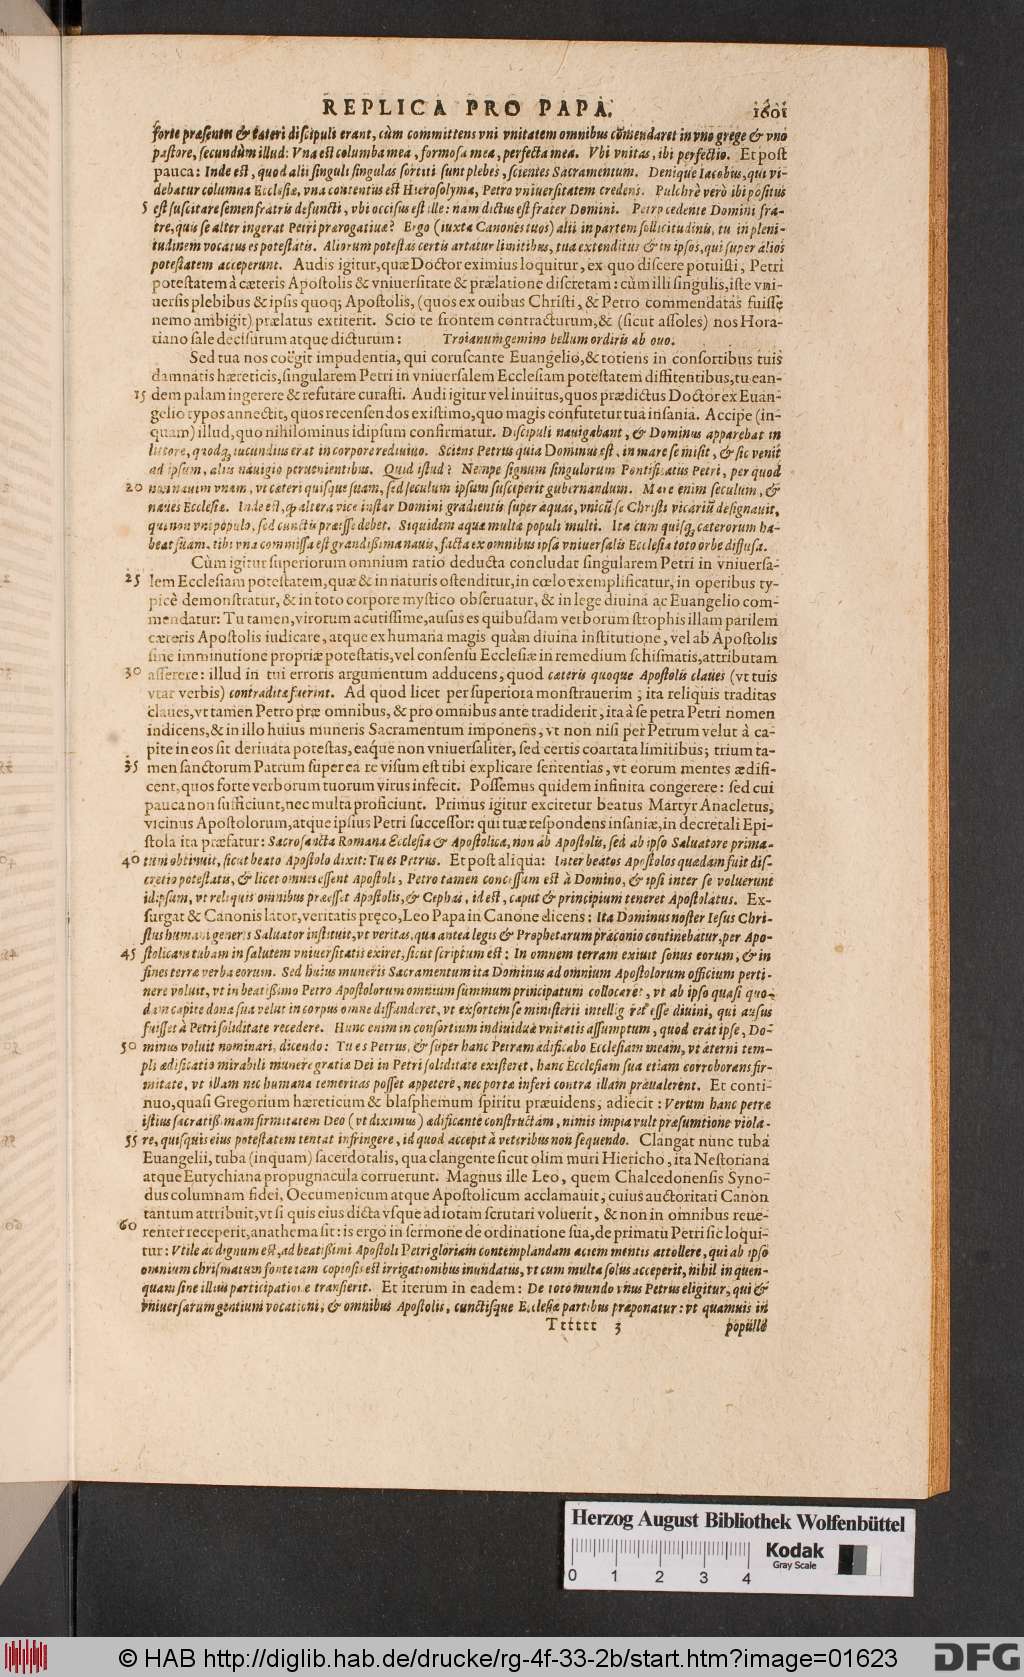 REPLICA PRO PAPA. 1601
forte præsentes & cæteri discipuli erant, cùm committens vni vnitatem omnibus cõmendaret in vno grege & vno
pastore, secundùm illud: Vna est columba mea, formosa mea, perfecta mea. Vbi vnitas, ibi perfectio. Et post
pauca: Inde est, quod alii singuli singulas sortiti sunt plebes, scientes Sacramentum. Denique Iacobus, qui vi-
debatur columna Ecclesiæ, vna contentus est Hierosolyma, Petro vniuersitatem credens. Pulchrè verò ibi positus
5 est suscitare semen fratris defuncti, vbi occisus est ille: nam dictus est frater Domini. Petro cedente Domini fra-
tre, quis se alter ingerat Petri prærogatiuæ? Ergo (iuxta Canones tuos) alii in partem sollicitudinis, tu in pleni-
tudinem vocatus es potestatis. Aliorum potestas certis artatur limitibus, tua extenditur & in ipsos, qui super alios
potestatem acceperunt. Audis igitur, quæ Doctor eximius loquitur, ex quo discere potuisti, Petri
potestatem à cæteris Apostolis & vniuersitate & prælatione discretam: cùm illi singulis, iste vni-
uersis plebibus & ipsis quoq; Apostolis, (quos ex ouibus Christi, & Petro commendatas fuisse
nemo ambigit) prælatus extiterit. Scio te frontem contracturum, & (sicut assoles) nos Hora-
tiano sale decisurum atque dicturum: Troianum gemino bellum ordiris ab ouo.
Sed tua nos coëgit impudentia, qui coruscante Euangelio, & totiens in consortibus tuis
damnatis hæreticis, singularem Petri in vniuersalem Ecclesiam potestatem diffitentibus, tu ean-
15 dem palam ingerere & refutare curasti. Audi igitur vel inuitus, quos prædictus Doctor ex Euan-
gelio typos annectit, quos recensendos existimo, quo magis confutetur tua insania. Accipe (in-
quam) illud, quo nihilominus idipsum confirmatur. Discipuli nauigabant, & Dominus apparebat in
littore, quodq; iucundius erat in corpore rediuiuo. Sciens Petrus quia Dominus est, in mare se misit, & sic venit
ad ipsum, aliis nauigio peruenientibus. Quid istud? Nempe signum singulorum Pontificatus Petri, per quod
20 non nauim vnam, vt cæteri quisque suam, sed seculum ipsum susceperit gubernandum. Mare enim seculum, &
naues Ecclesiæ. Inde est, ꝙ altera vice instar Domini gradientis super aquas, vnicũ se Christi vicariũ designauit,
qui non vni populo, sed cunctis præesse debet. Siquidem aquæ multæ populi multi. Ita cum quisq; cæterorum ha-
beat suam, tibi vna commissa est grandissima nauis, facta ex omnibus ipsa vniuersalis Ecclesia toto orbe diffusa.
Cùm igitur superiorum omnium ratio deducta concludat singularem Petri in vniuersa-
25 lem Ecclesiam potestatem, quæ & in naturis ostenditur, in cœlo exemplificatur, in operibus ty-
picè demonstratur, & in toto corpore mystico obseruatur, & in lege diuina ac Euangelio com-
mendatur: Tu tamen, virorum acutissime, ausus es quibusdam verborum strophis illam parilem
cæteris Apostolis iudicare, atque ex humana magis quàm diuina institutione, vel ab Apostolis
sine imminutione propriæ potestatis, vel consensu Ecclesiæ in remedium schismatis, attributam
30 asserere: illud in tui erroris argumentum adducens, quod cæteris quoque Apostolis claues (vt tuis
vtar verbis) contraditæ fuerint. Ad quod licet per superiora monstrauerim, ita reliquis traditas
claues, vt tamen Petro præ omnibus, & pro omnibus ante tradiderit, ita à se petra Petri nomen
indicens, & in illo huius muneris Sacramentum imponens, vt non nisi per Petrum velut à ca-
pite in eos sit deriuata potestas, eaque non vniuersaliter, sed certis coartata limitibus; trium ta-
35 men sanctorum Patrum super ea re visum est tibi explicare sententias, vt eorum mentes ædifi-
cent, quos forte verborum tuorum virus infecit. Possemus quidem infinita congerere: sed cui
pauca non sufficiunt, nec multa proficiunt. Primus igitur excitetur beatus Martyr Anacletus,
vicinus Apostolorum, atque ipsius Petri successor: qui tuæ respondens insaniæ, in decretali Epi-
stola ita præfatur: Sacrosancta Romana Ecclesia & Apostolica, non ab Apostolis, sed ab ipso Saluatore prima-
40 tum obtinuit, sicut beato Apostolo dixit: Tu es Petrus. Et post aliqua: Inter beatos Apostolos quædam fuit dis-
cretio potestatis, & licet omnes essent Apostoli, Petro tamen concessum est à Domino, & ipsi inter se voluerunt
idipsum, vt reliquis omnibus præesset Apostolis, & Cephas, id est, caput & principium teneret Apostolatus. Ex-
surgat & Canonis lator, veritatis pręco, Leo Papa in Canone dicens: Ita Dominus noster Iesus Chri-
stus humani generis Saluator instituit, vt veritas, quæ antea legis & Prophetarum præconio continebatur, per Apo-
45 stolicam tubam in salutem vniuersitatis exiret, sicut scriptum est: In omnem terram exiuit sonus eorum, & in
fines terræ verba eorum. Sed huius muneris Sacramentum ita Dominus ad omnium Apostolorum officium perti-
nere voluit, vt in beatissimo Petro Apostolorum omnium summum principatum collocaret, vt ab ipso quasi quo-
dam capite dona sua velut in corpus omne diffunderet, vt exsortem se ministerii intelligeret esse diuini, qui ausus
fuisset à Petri soliditate recedere. Hunc enim in consortium indiuiduæ vnitatis assumptum, quod erat ipse, Do-
50 minus voluit nominari, dicendo: Tu es Petrus, & super hanc Petram ædificabo Ecclesiam meam, vt æterni tem-
pli ædificatio mirabili munere gratiæ Dei in Petri soliditate existeret, hanc Ecclesiam sua etiam corroborans fir-
mitate, vt illam nec humana temeritas posset appetere, nec portæ inferi contra illam præualerent. Et conti-
nuo, quasi Gregorium hæreticum & blasphemum spiritu præuidens, adiecit: Verum hanc petræ
istius sacratissimam firmitatem Deo (vt diximus) ædificante constructam, nimis impia vult præsumtione viola-
55 re, quisquis eius potestatem tentat infringere, id quod accepit à veteribus non sequendo. Clangat nunc tuba
Euangelii, tuba (inquam) sacerdotalis, qua clangente sicut olim muri Hiericho, ita Nestoriana
atque Eutychiana propugnacula corruerunt. Magnus ille Leo, quem Chalcedonensis Syno-
dus columnam fidei, Oecumenicum atque Apostolicum acclamauit, cuius auctoritati Canon
tantum attribuit, vt si quis eius dicta vsque ad iotam scrutari voluerit, & non in omnibus reue-
60 renter receperit, anathema sit: is ergo in sermone de ordinatione sua, de primatu Petri sic loqui-
tur: Vtile ac dignum est, ad beatissimi Apostoli Petri gloriam contemplandam aciem mentis attollere, qui ab ipso
omnium chrismatum fonte tam copiosis est irrigationibus inundatus, vt cum multa solus acceperit, nihil in quen-
quam sine illius participatione transierit. Et iterum in eadem: De toto mundo vnus Petrus eligitur, qui &
vniuersarum gentium vocationi, & omnibus Apostolis, cunctisque Ecclesiæ partibus præponatur: vt quamuis in
Tttttt 3 populo
Herzog August Bibliothek Wolfenbüttel
Kodak
Gray Scale
0 1 2 3 4
© HAB http://diglib.hab.de/drucke/rg-4f-33-2b/start.htm?image=01623
DFG